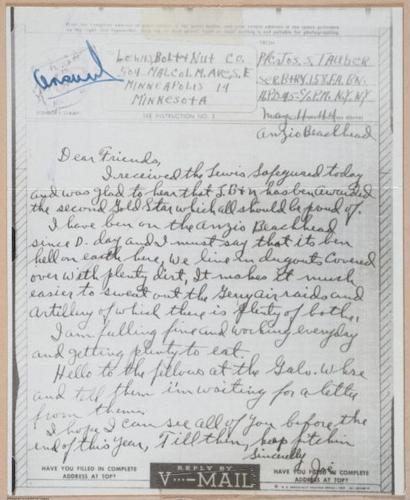 Answered
Lewis Bolt & Nut Co.
504 Malcolm Ave. S.E
Minneapolis 14
Minnesota
FROM
Pfc Jos. S. Tauber
Ser Btry 158 F.A. BN.
A.P.O #45 c/o P.M. N.Y. N.Y
May 4-44
Anzio Beachhead
SEE INSTRUCTION NO. 2
Dear Friends,
I received the Lewis Safeguard today
and was glad to hear that L.B&N has ben awarded
the second Gold Star which all should be proud of.
I have ben on the Anzio Beachhead
since D. day and I must say that its ben
hell on earth here, We live in dugouts covered
over with plenty dirt, It makes it much
easier to sweat out the Gerry Air raids and
Artillery of which there is plenty of both,
I am fulling fine and working everyday
and getting plenty to eat.
Hello to the fellows at the Galv. Whse
and tell them i'm waiting for a letter
from them.
I hope I can see all of you before the
end of this year, Till then, keep pitchin
Sincerely
Joe
HAVE YOU FILLED IN COMPLETE
ADDRESS AT TOP?
REPLY BY
V···—MAIL
HAVE YOU FILLED IN COMPLETE
ADDRESS AT TOP?